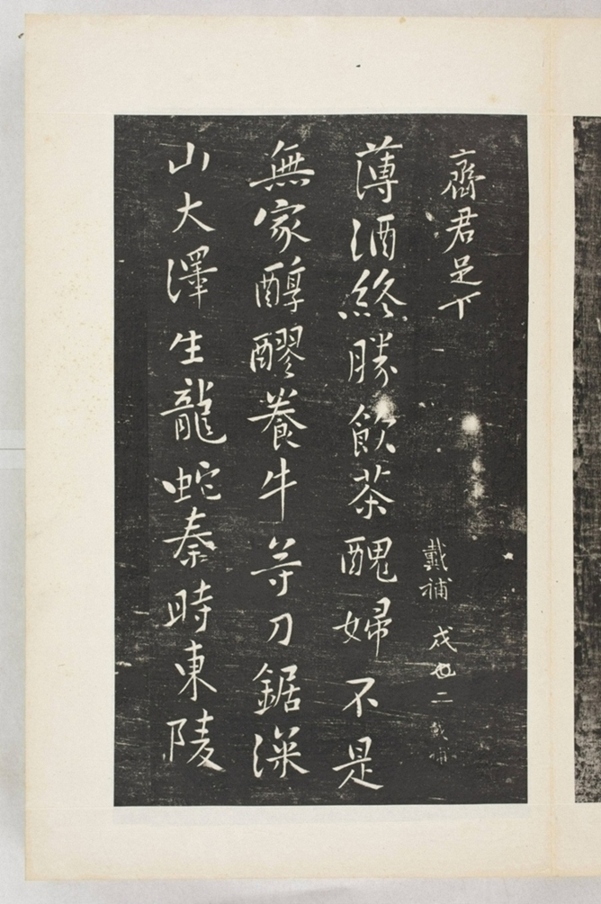 齋君足下
戴補
薄酒終勝飲茶醜婦不是
無家醇醪養牛等刀鋸深
山大澤生龍蛇秦時東陵